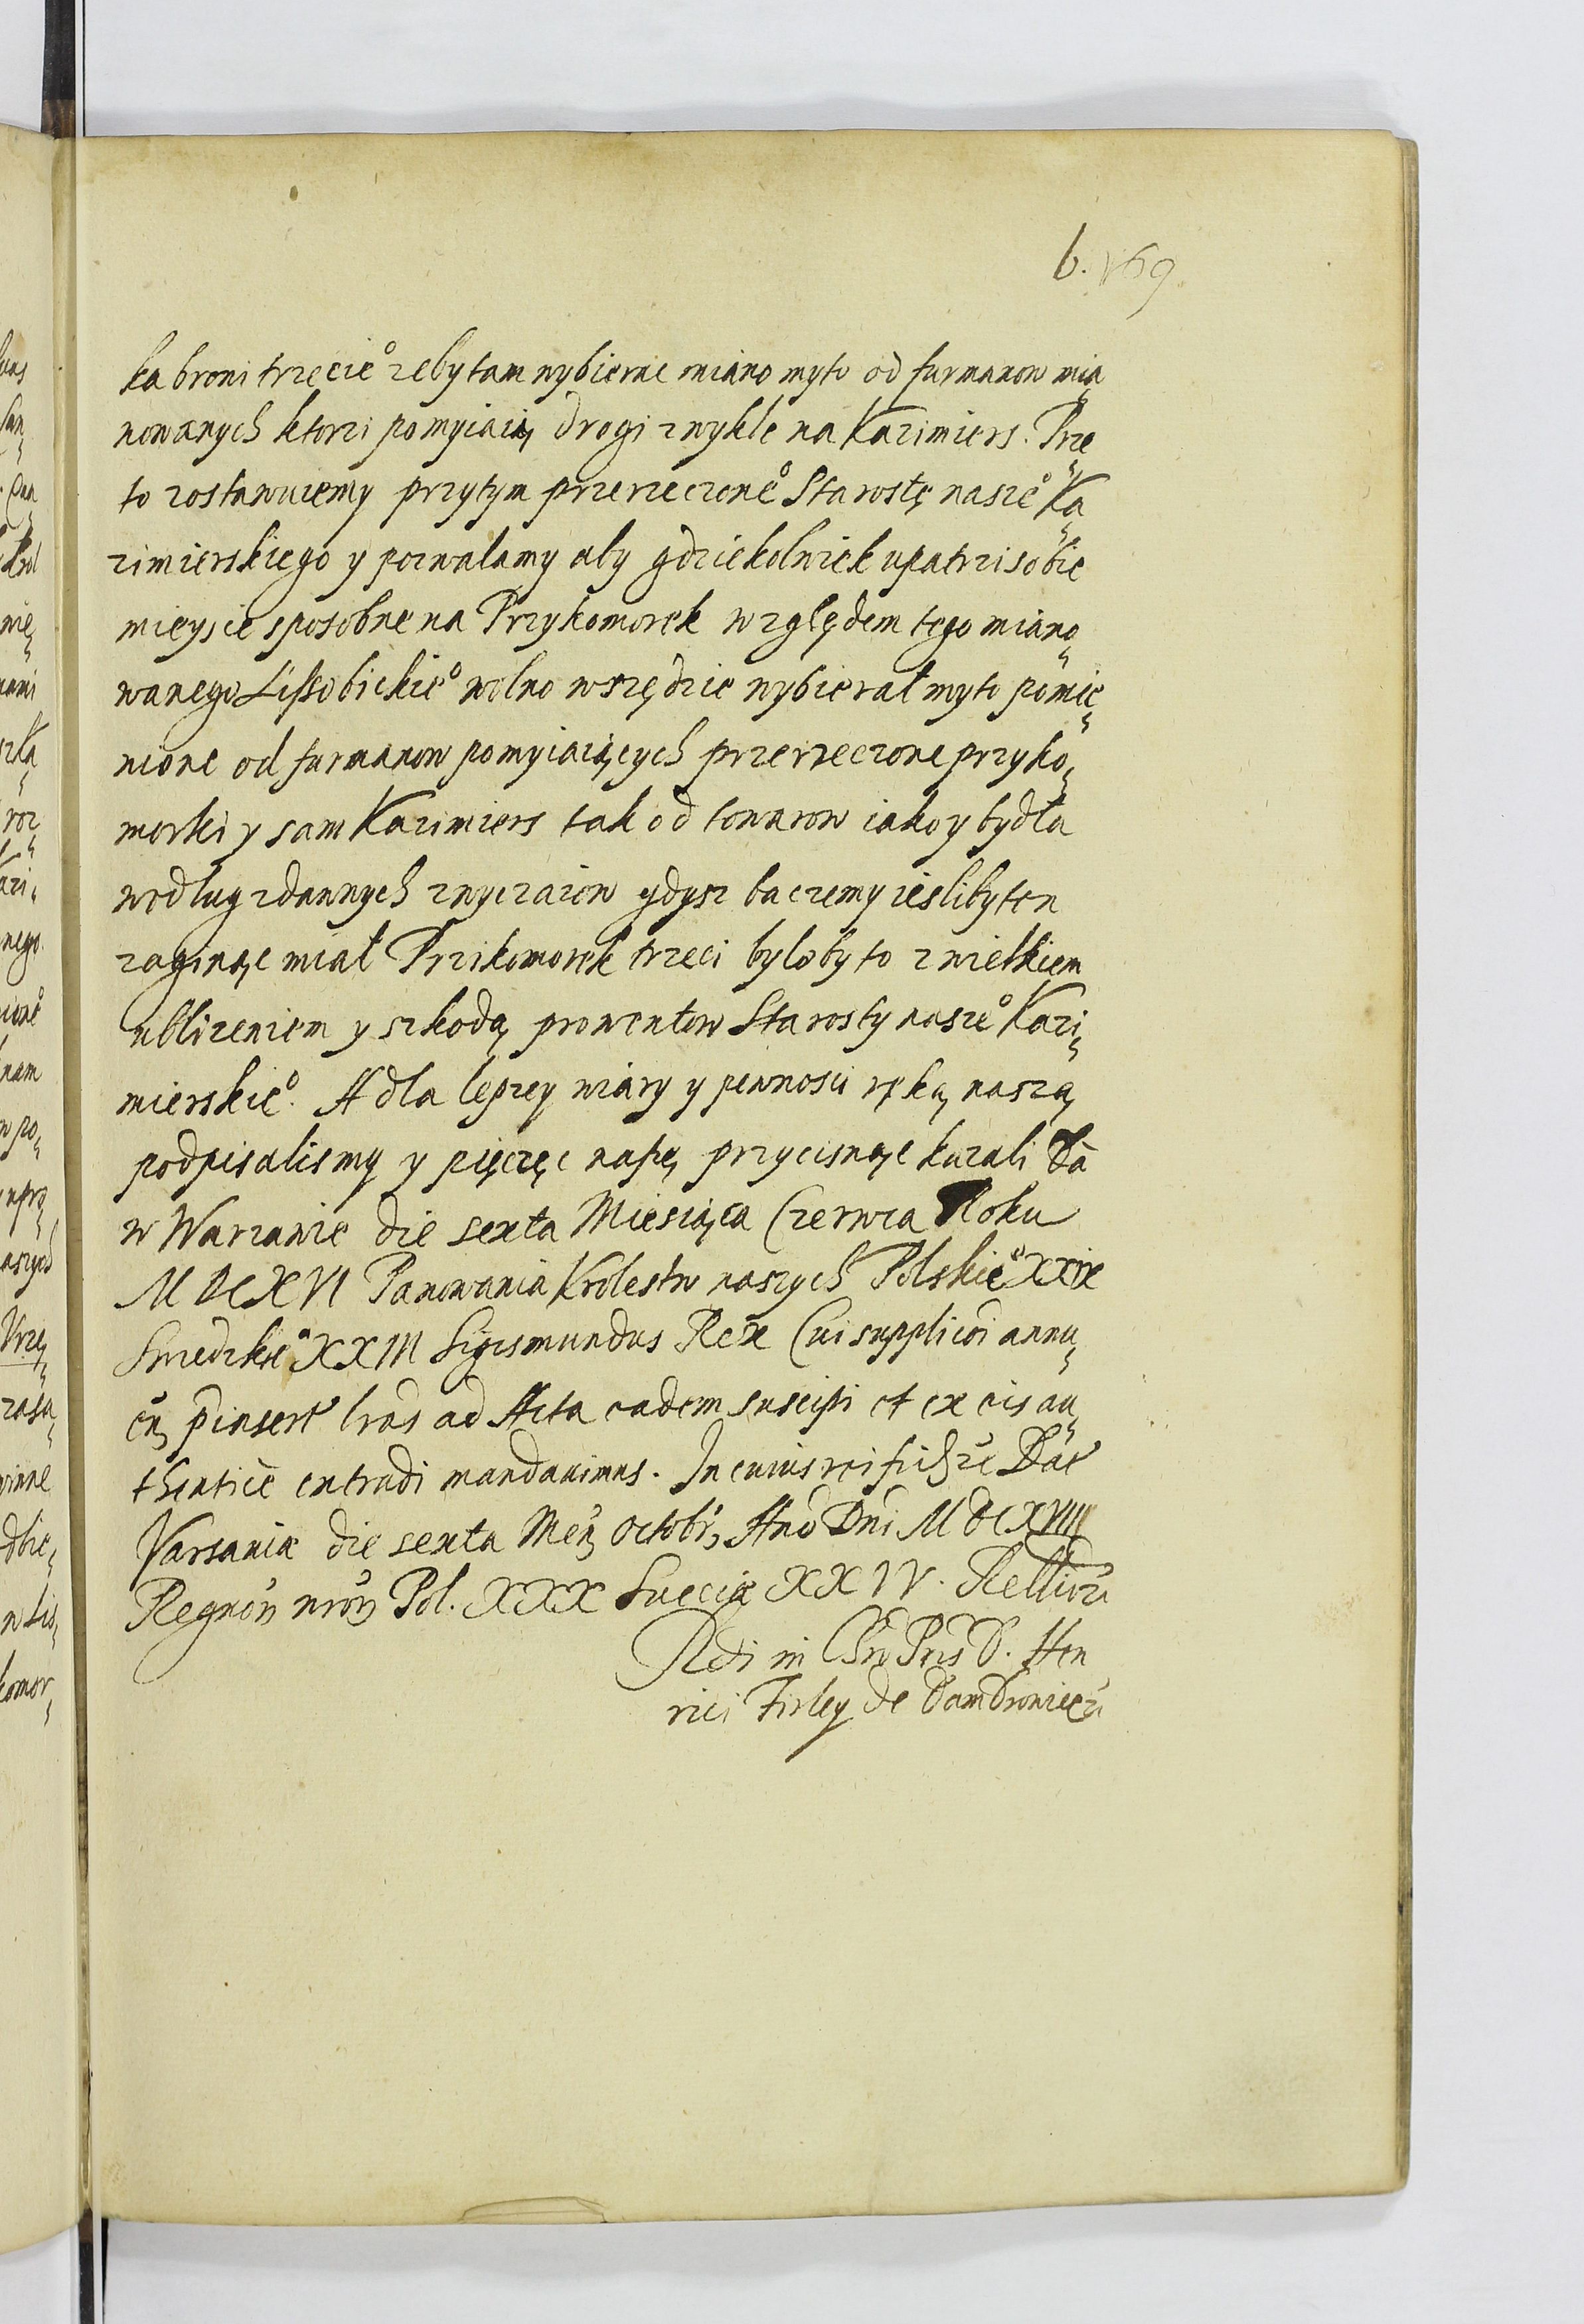 6. 169.
ka broni trzecie° zeby tam wybierac miano myto od furmanow mia„
nowanych ktorzi pomyiaią drogi zwykle na Kazimiers. Prze„
to zostawuiemy przytym przerzeczone° Starostę nasze° Ka„
zimierskiego y pozwalamy aby gdziekolwiek upatrzi sobie
mieysce sposobne na Przykomorek względem tego miano„
wanego Lissobickie° wolno wszędzie wybierał myto pomie„
nione od furmanow pomyiaiących przerzeczone przyko„
morki y sam Kazimiers tak od towarow iako y bydła
wodlug zdawnych zwyczaiow gdysz baczemy iesliby ten
zaginąc miał Przikomorek trzeci byloby to z wielkiem
ubliżeniem y szkodą prowentow Starosty nasze° Kazi„
mierskie°. A dla lepzey wiary y pewnosci ręką naszą
podpisalismy y pięczęc naszę przycisnąc kazali Dā
w Warzawie die sexta Miesiąca Czerwca Roku
MDCXVI Panowania Krolestw naszych Polskie° XXIX
Swedzkie° XXIII Sigismundus Rex Cui supplicōi annu„
eñ pinsert lras ad Acta eadem suscipi et ex eis au„
thentice extradi mandauimus. In cuius rei fidē Dat
Varsaviæ die sexta Meñ Octobr Año Dñi MDCXVIII
Regnoȓ nroȓ Pol. XXX Sueciæ XXIV. Relliōa
Rdi in Chro Pris D. Hen
rici Firley de Dambrowica